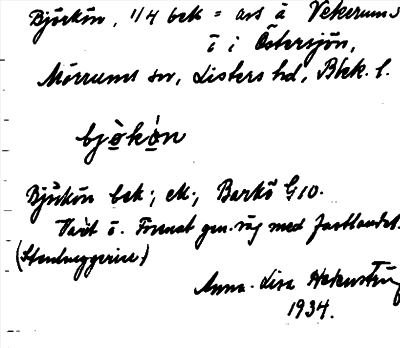 Björkön, 1/4 bek = avs å Vekerums
ö i Östersjön,
Mörrums sn, Listers hd, Blek. l.
bjö̀kö̀n
Björkön bek; ek., Barkö G10.
Varit ö. Förenat gen. väg med fastlandet.
(Stenhuggerier)
Anna-Lisa
1934.